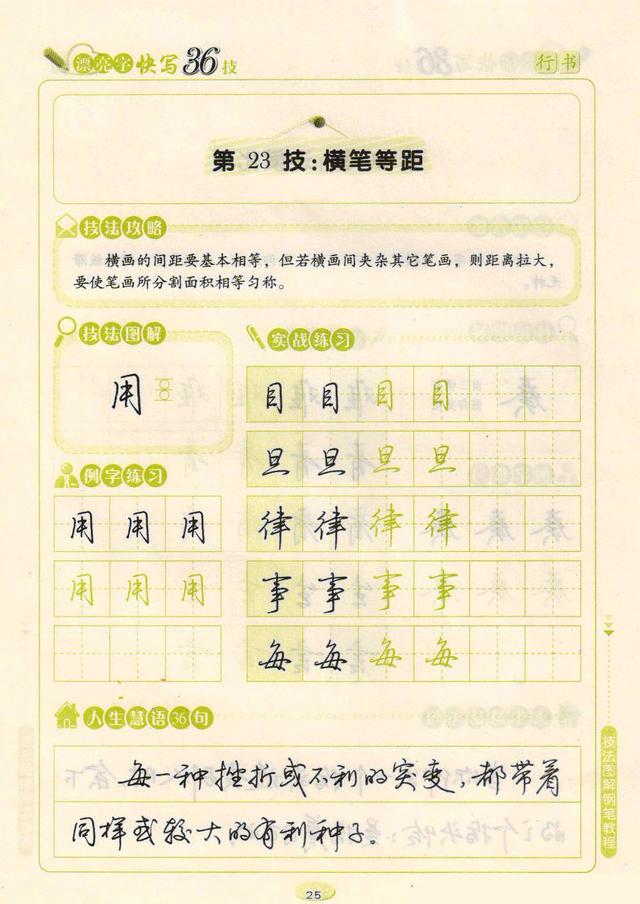 漂亮字快写36技
行书
第 23 技：横笔等距
技法攻略
横画的间距要基本相等，但若横画间夹杂其它笔画，则距离拉大，
要使笔画所分割面积相等匀称。
技法图解
用
实战练习
目 目 目 目
旦 旦 旦 旦
律 律 律 律
事 事 事 事
每 每 每 每
例字练习
用 用 用
用 用 用
人生慧语36句
每一种挫折或不利的突变，都带着
同样或较大的有利种子。
技法图解钢笔教程
25